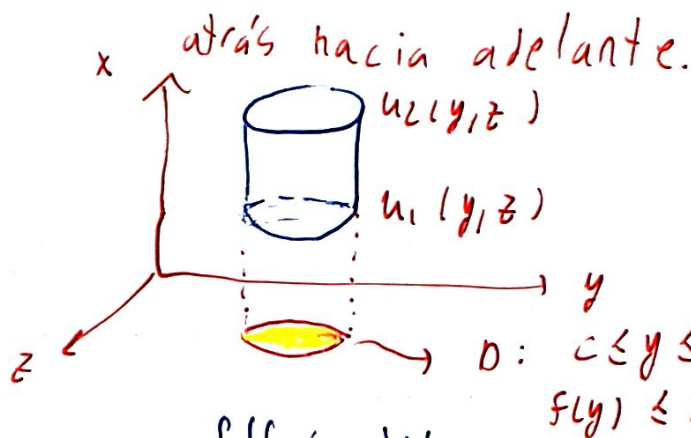 atrás hacia adelante.
x
u₂(y,z)
u₁(y,z)
y
z
D: c ≤ y ≤
f(y) ≤